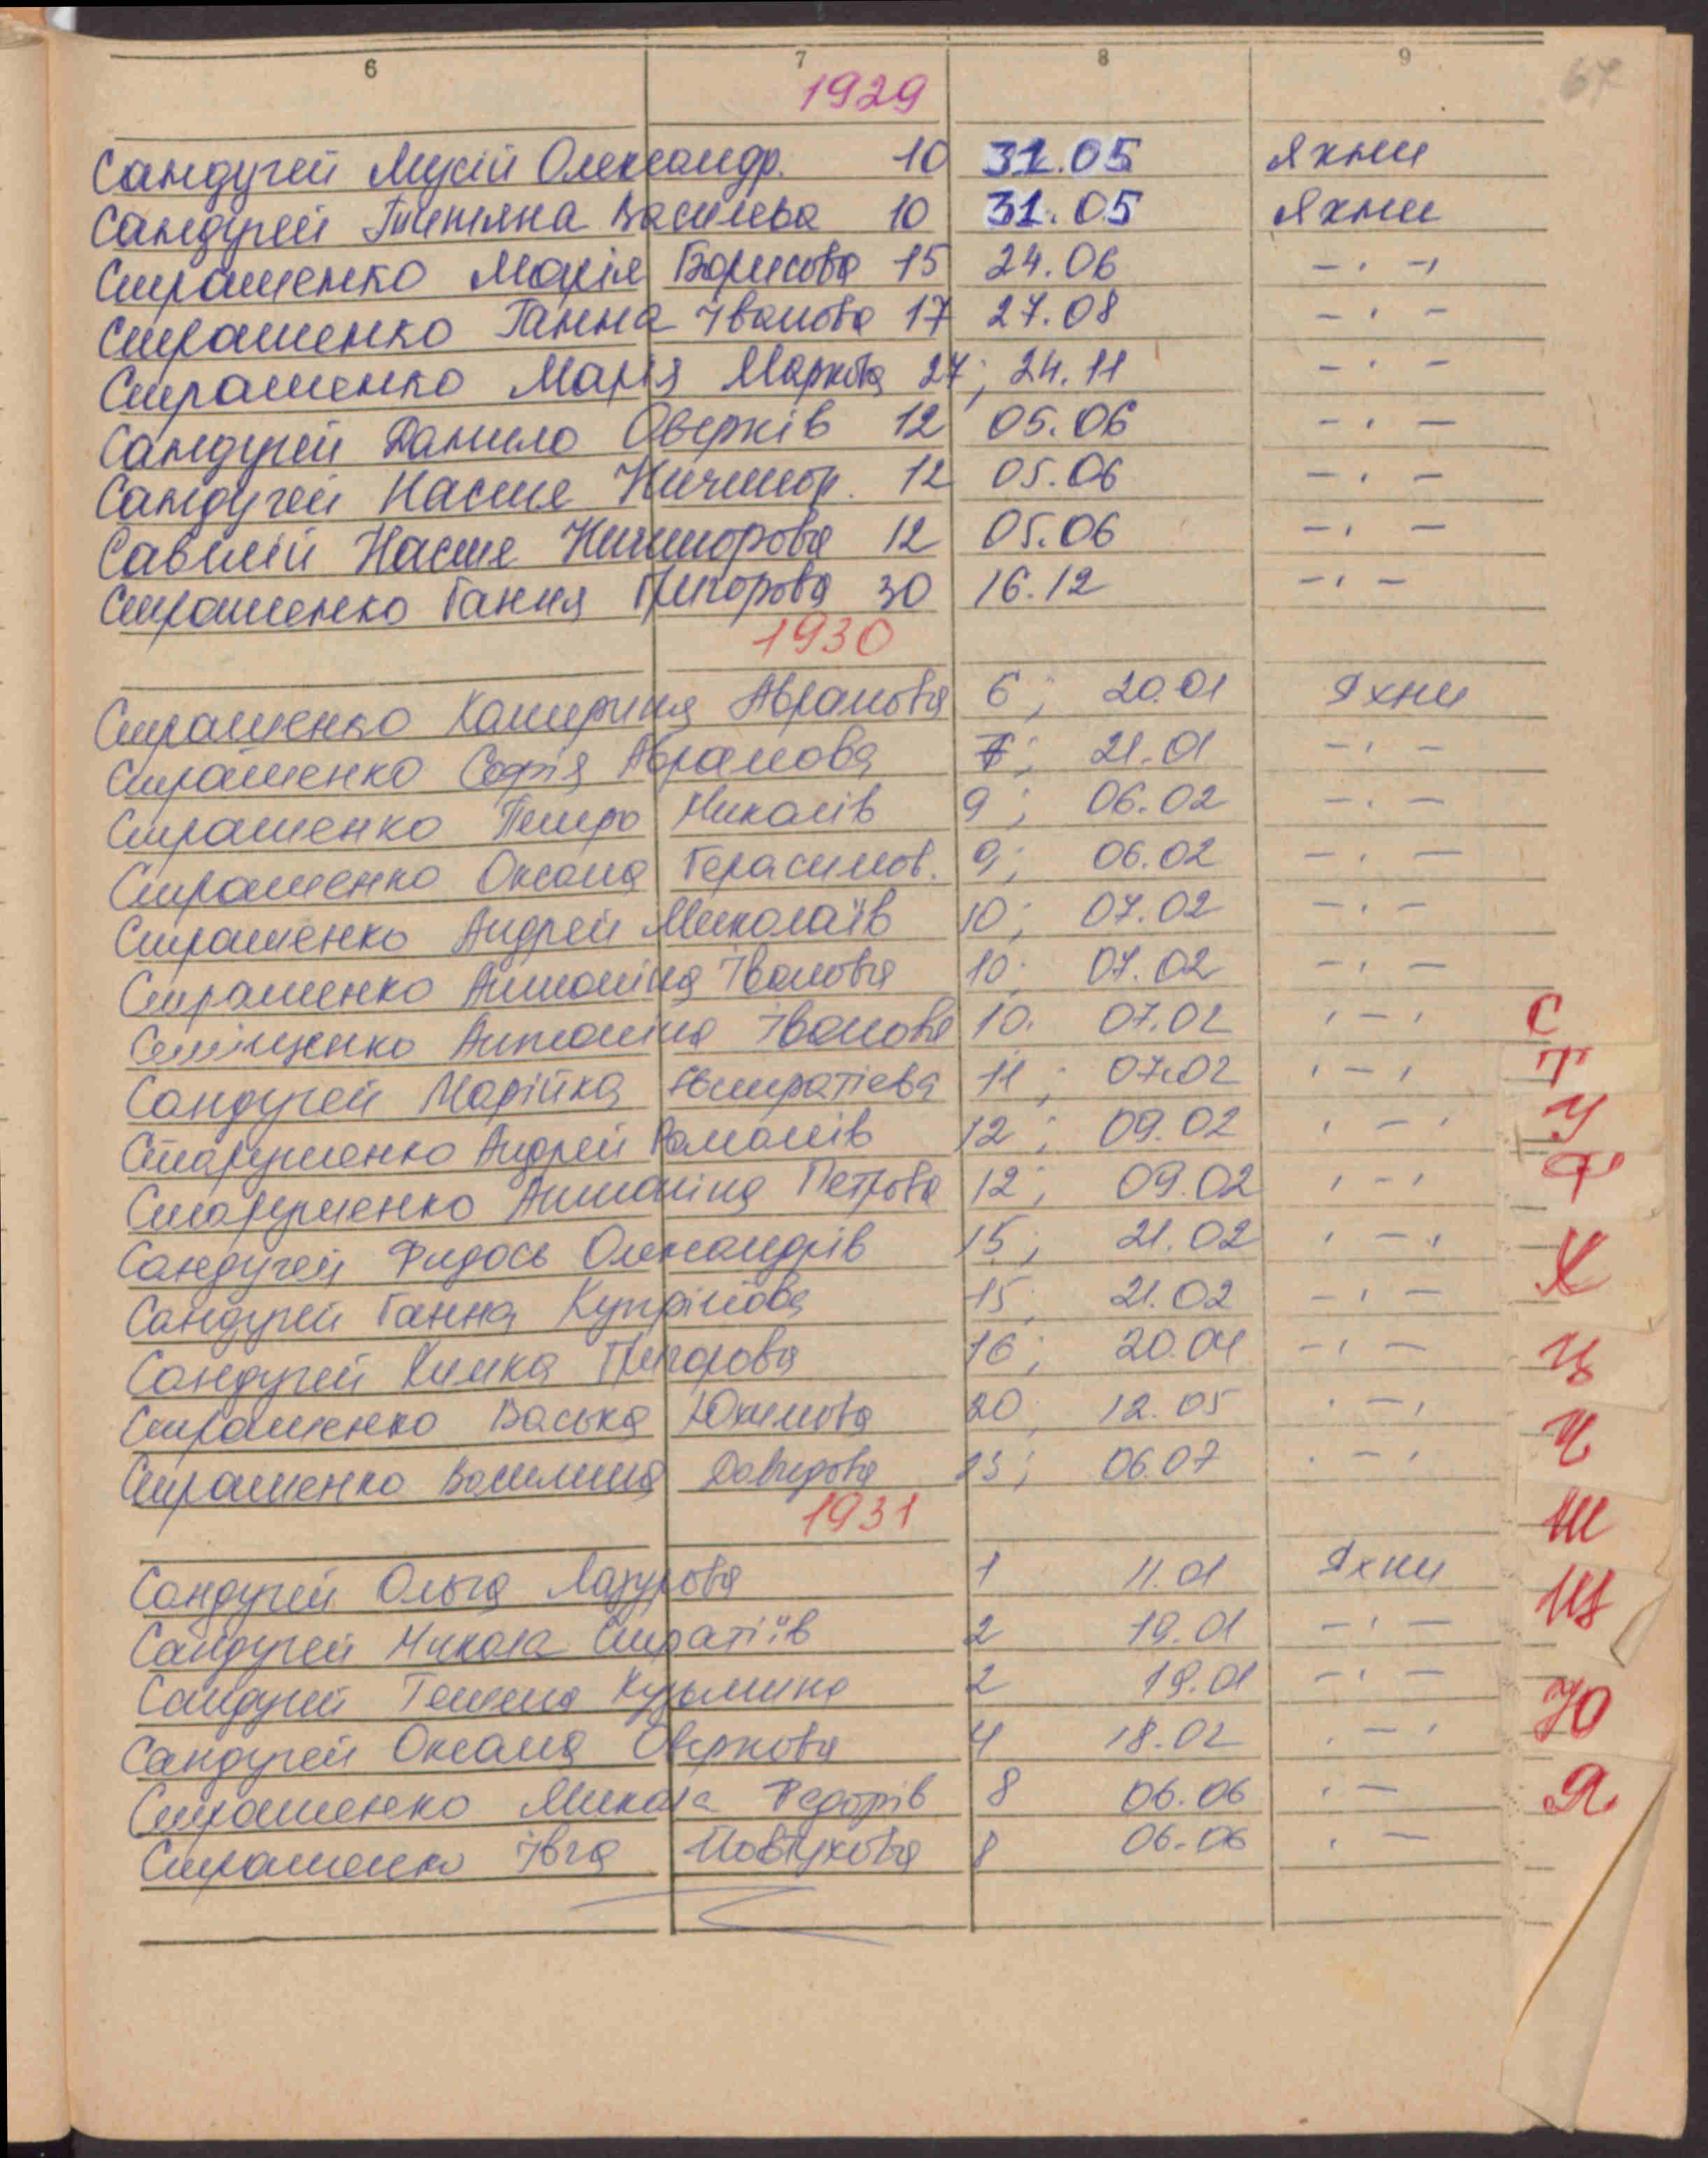 6 7 8 9
67
1929
Сандугей Мусій Олександр. 10 31.05 Яхни
Сандугей Титяна Васильва 10 31.05 Яхни
Страшенко Марія Борисова 15 24.06 - " -
Страшенко Ганна Іванова 17 27.08 - " -
Страшенко Марія Маркова 27; 24.11 - " -
Сандугей Данило Оверків 12 05.06 - " -
Сандугей Настя Ничипор. 12 05.06 - " -
Савілій Настя Ничипорова 12 05.06 - " -
Страшенко Ганна Григорова 30 16.12 - " -
1930
Страшенко Катерина Аврамова 6; 20.01 Яхни
Страшенко Софія Абрамова 7; 21.01 - " -
Страшенко Петро Миколів 9; 06.02 - " -
Страшенко Оксана Герасимов. 9; 06.02 - " -
Страшенко Андрей Миколаїв 10; 07.02 - " -
Страшенко Антоніна Іванова 10; 07.02 - " -
Антоніна Іванова 10. 07.02 " - "
С
Сандугей Марійка 11; 07.02 " - "
Т
Старушенко Андрей Романів 12; 09.02 " - "
У
Старушенко Антоніна Петрова 12; 09.02 " - "
Ф
Сандугей Фидось Олександрів 15; 21.02 " - "
Х
Сандугей Ганна Купріянова 15; 21.02 - " -
Сандугей Химка Григорова 16; 20.04 - " -
Ц
Страшенко Васька Юхимова 20; 12.05 " - "
Ч
Страшенко Василина Давидова 23; 06.07 " - "
1931
Ш
Сандугей Ольга Лазурова 1 11.01 Яхни
Щ
Сандугей Микола Стратіїв 2 19.01 - " -
Сандугей Тетяна Кузьмина 2 19.01 - " -
Ю
Сандугей Оксана Оверкова 4 18.02 " - "
Страшенко Микола Федорів 8 06.06 " -
Я
Страшенко Івга Повтухова 8 06.06 " -